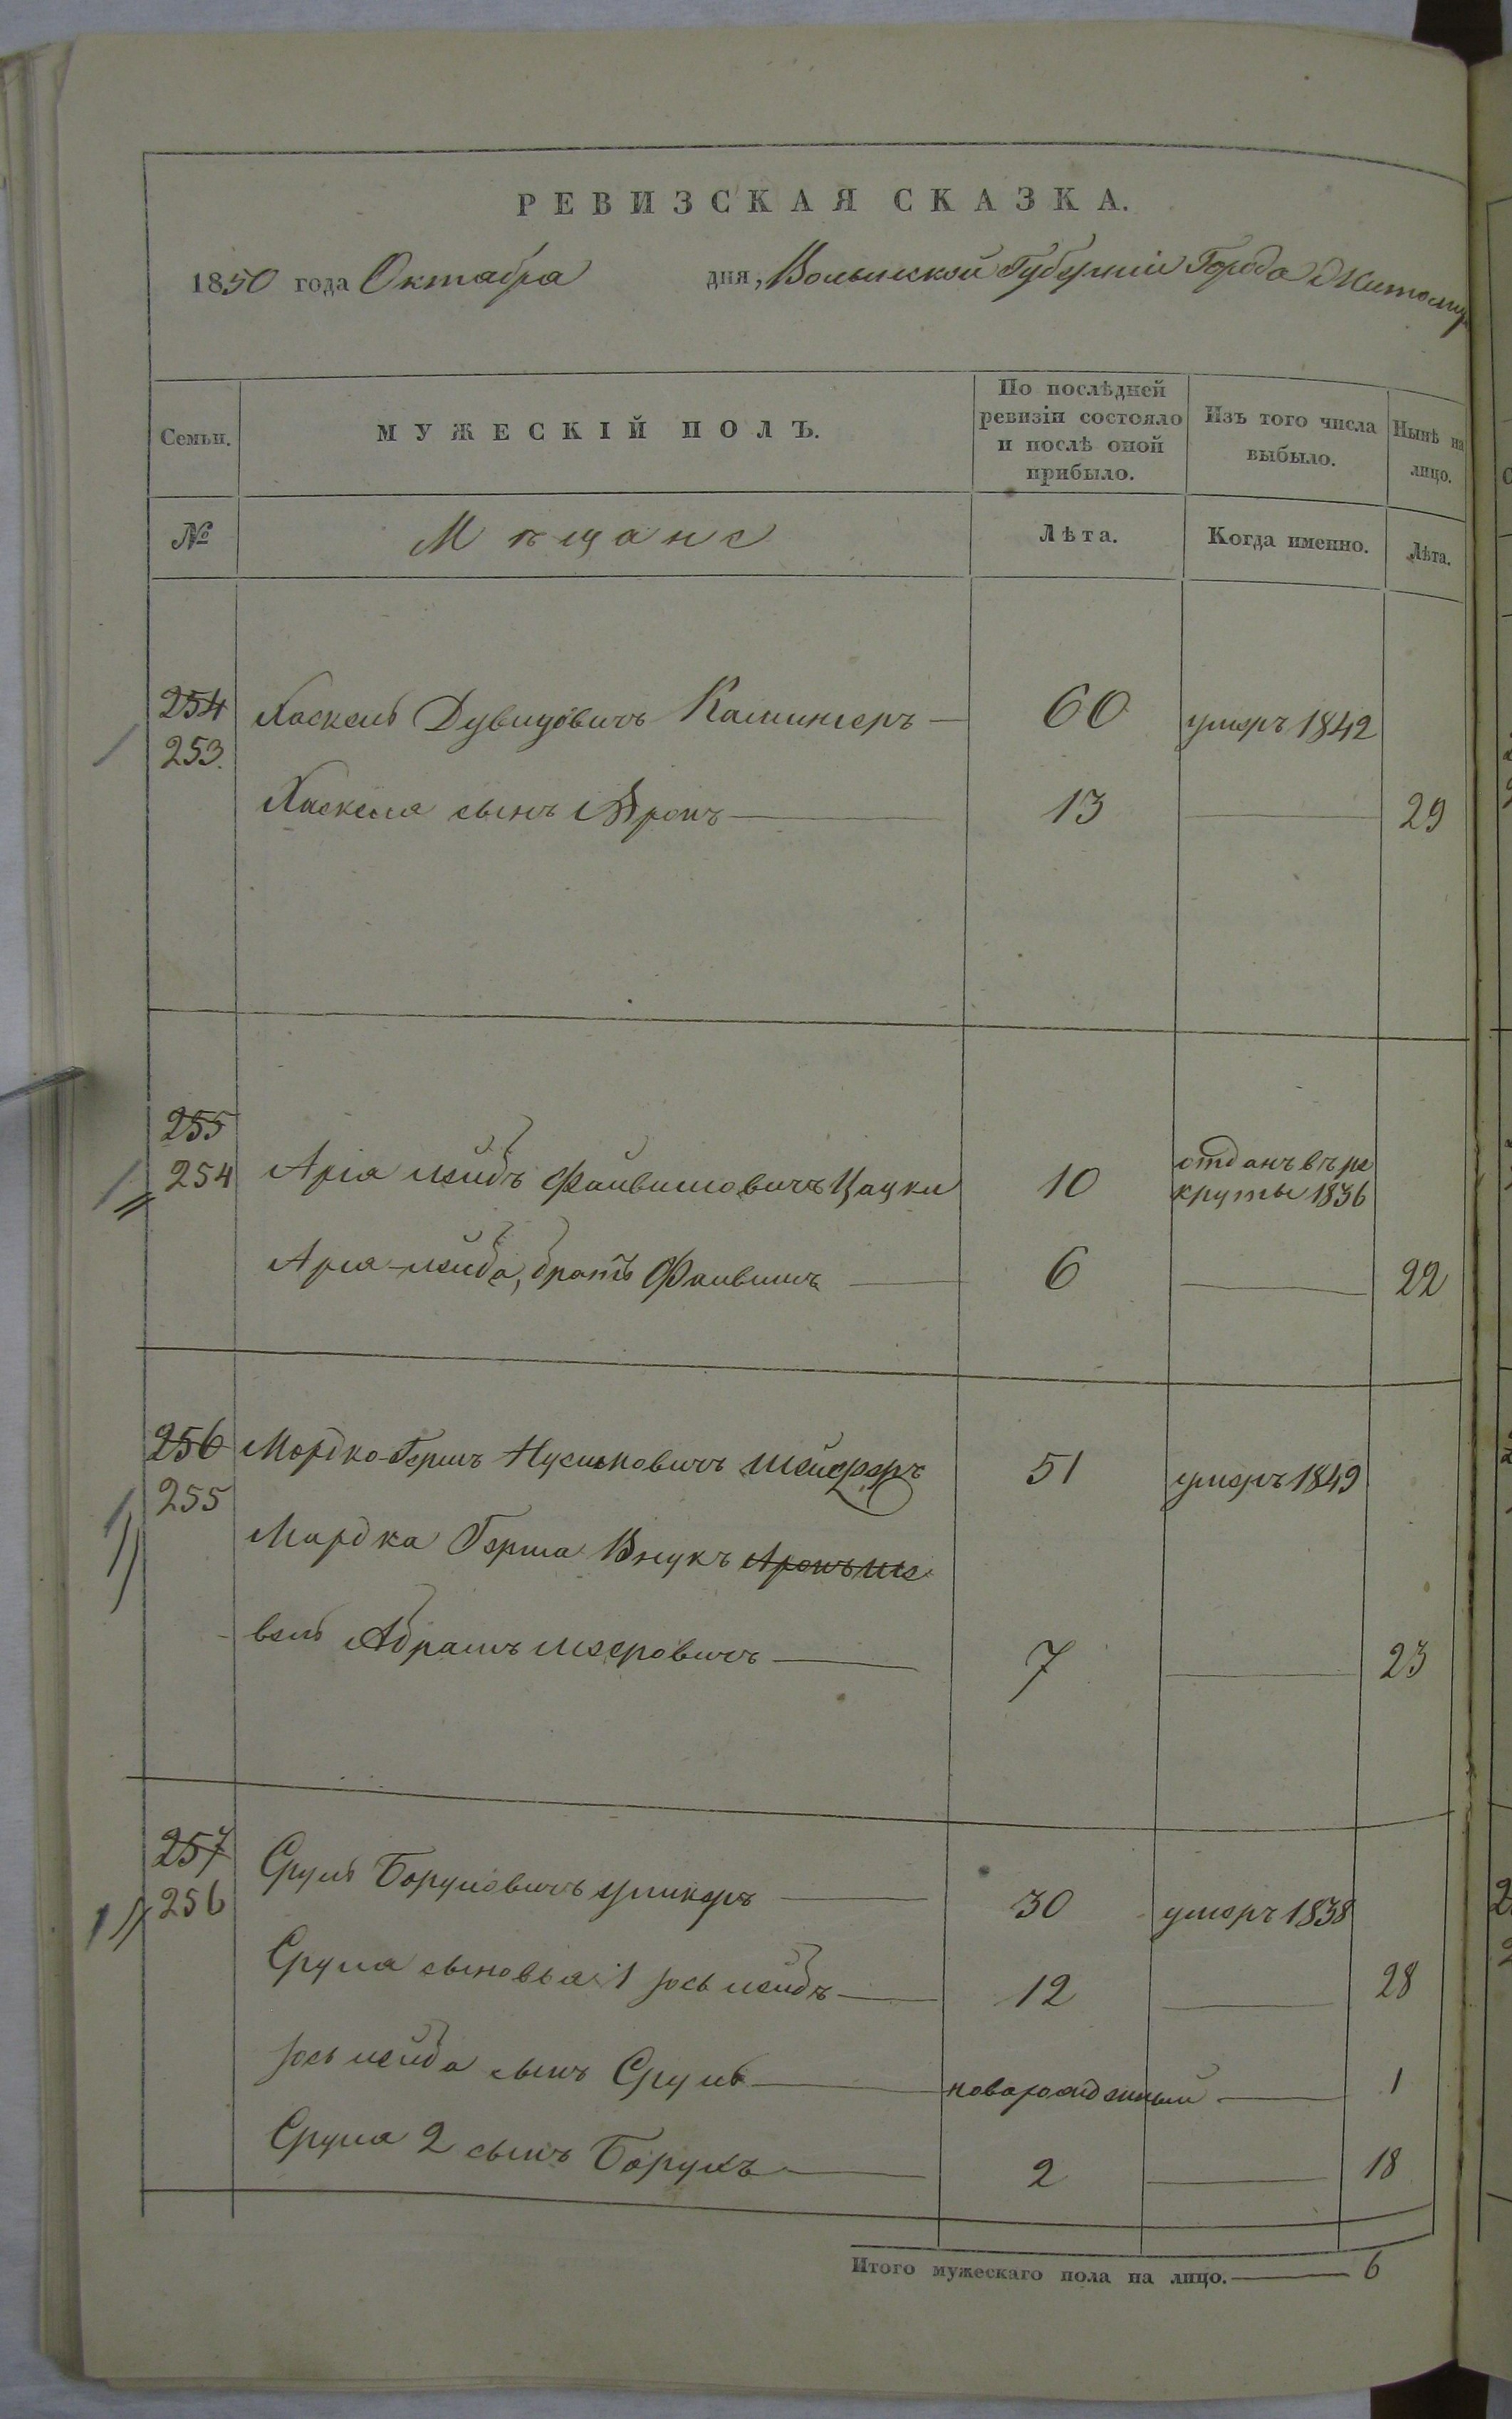 РЕВИЗСКАЯ СКАЗКА.
1850 года Октабра дня, Волынской Губерніи Города Житомир
Семьи. МУЖЕСКІЙ ПОЛЪ. По послѣдней ревизіи состояло и послѣ оной прибыло. Изъ того числа выбыло. Нынѣ на лицо.
№ Мѣщане Лѣта. Когда именно. Лѣта.
254 Хаскель Дувидовичъ 60 умеръ 1842
253.
Хаскеля сынъ Аронъ 13 29
255 отданъ в ре
254 Арія лейбъ Файвишовичъ Цацки 10 круты 1836
Аріа-лейба, братъ Файвишъ 6 22
256 Мордко-Гершъ Нусиновичъ Шейферъ 51 умеръ 1849
255
Мардка Герша Внукъ Аронъ Ше
вель Абрамъ Меэровичъ 7 23
257 Сруль Боруховичъ 30 умеръ 1838
256
Сруля сыновья 1 Іось лейбъ 12 28
Іось лейба сынъ Сруль новарожденный 1
Сруля 2 сынъ Борухъ 2 18
Итого мужескаго пола на лицо. 6